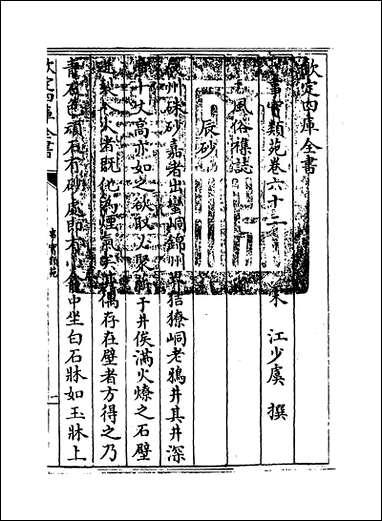 欽定四庫全書
事實類苑卷六十二
宋 江少虞 撰
風俗雜誌
辰砂
辰州硃砂嘉者出蠻峒錦州界狤獠峒老鴉井其井深
廣十丈高亦如之欲取必聚薪于井俟滿火燎之石壁
迸裂入火者既化為煙氣矣其偶存在壁者方得之乃
青石色頑石有砂處即有小龕中坐白石牀如玉牀上
欽定四庫全書
事實類苑
一